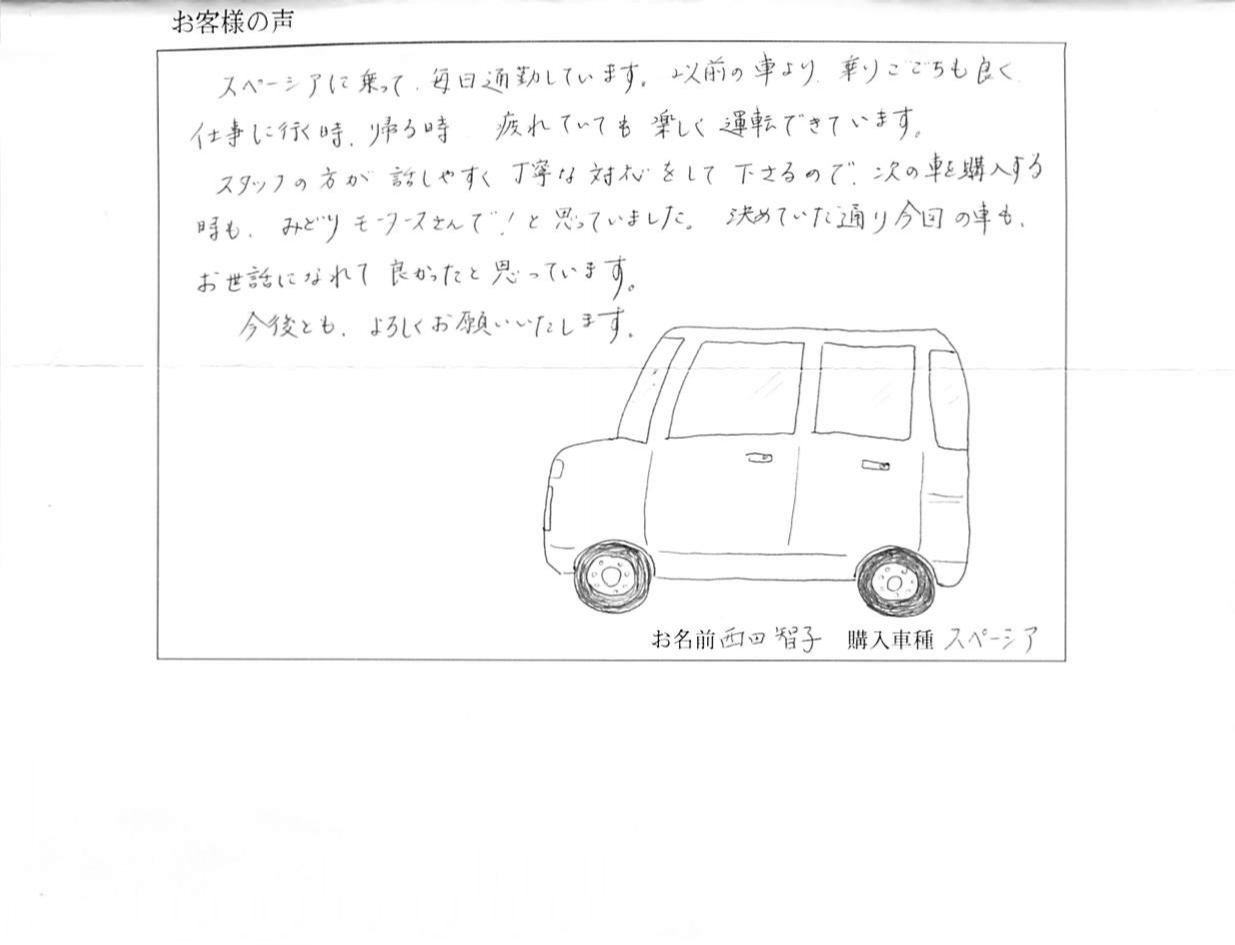 お客様の声
スペーシアに乗って、毎日通勤しています。以前の車より、乗りごこちも良く
仕事に行く時、帰る時 疲れていても楽しく運転できています。
スタッフの方が話しやすく丁寧な対応をして下さるので、次の車を購入する
時も、みどりモータースさんで！と思っていました。決めていた通り今回の車も、
お世話になれて良かったと思っています。
今後とも、よろしくお願いいたします。
お名前 西田 智子 購入車種 スペーシア